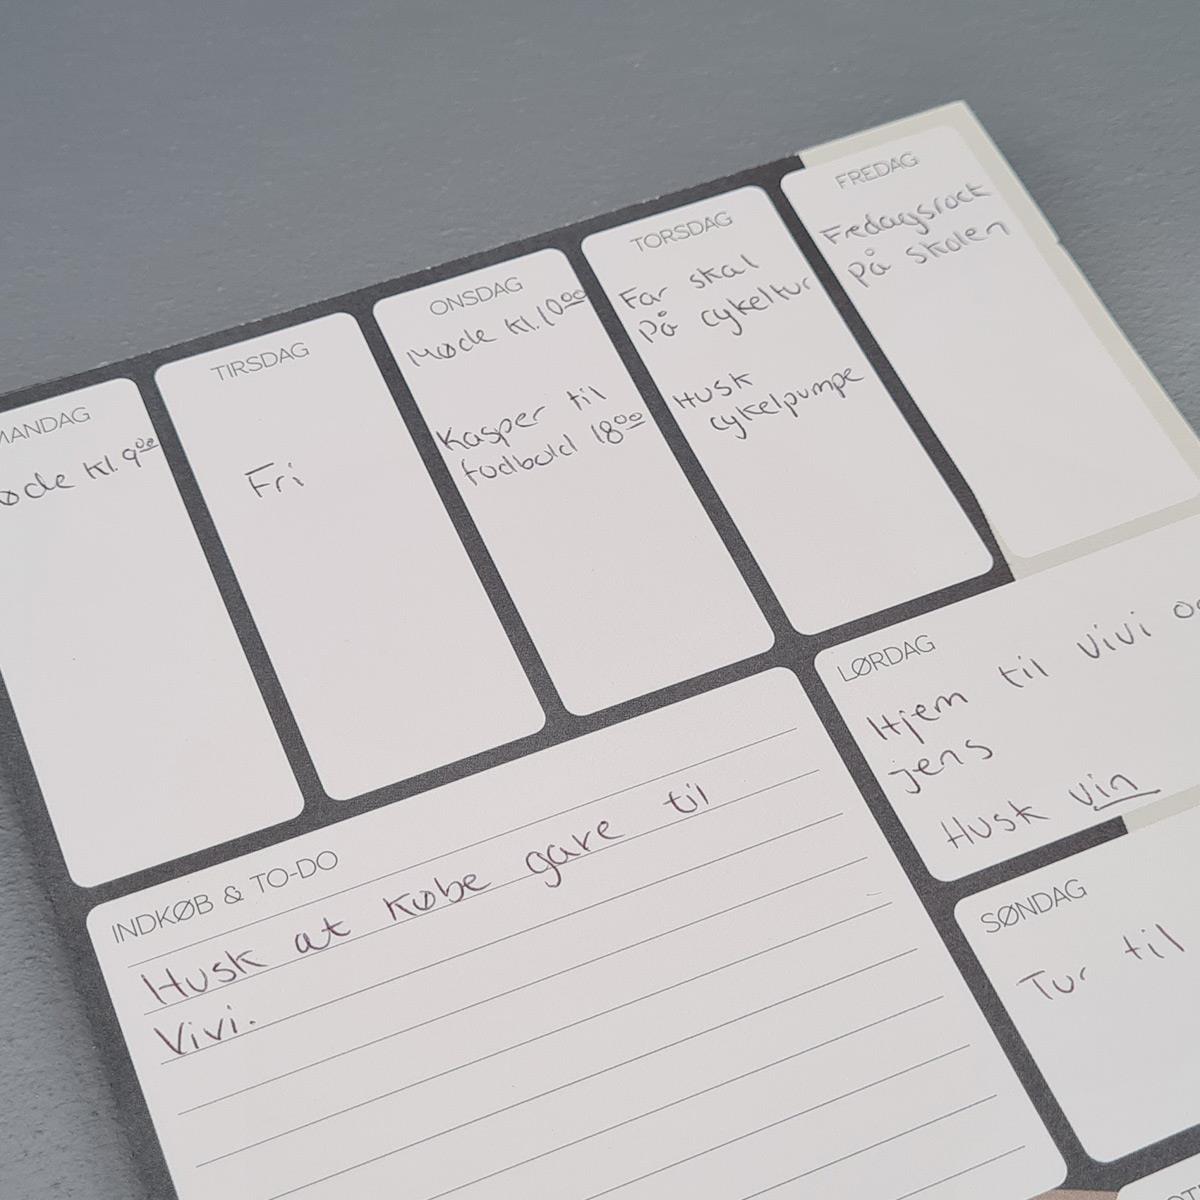 MANDAG
Møde Kl. 9⁰⁰
TIRSDAG
Fri
ONSDAG
Møde Kl. 10⁰⁰
Kasper til
fodbold 18⁰⁰
TORSDAG
Far skal
på cykeltur
Husk
cykelpumpe
FREDAG
Fredagsrock
på skolen
LØRDAG
Hjem til Vivi
jens
Husk vin
SØNDAG
Tur til
INDKØB & TO-DO
Husk at købe gave til
Vivi.